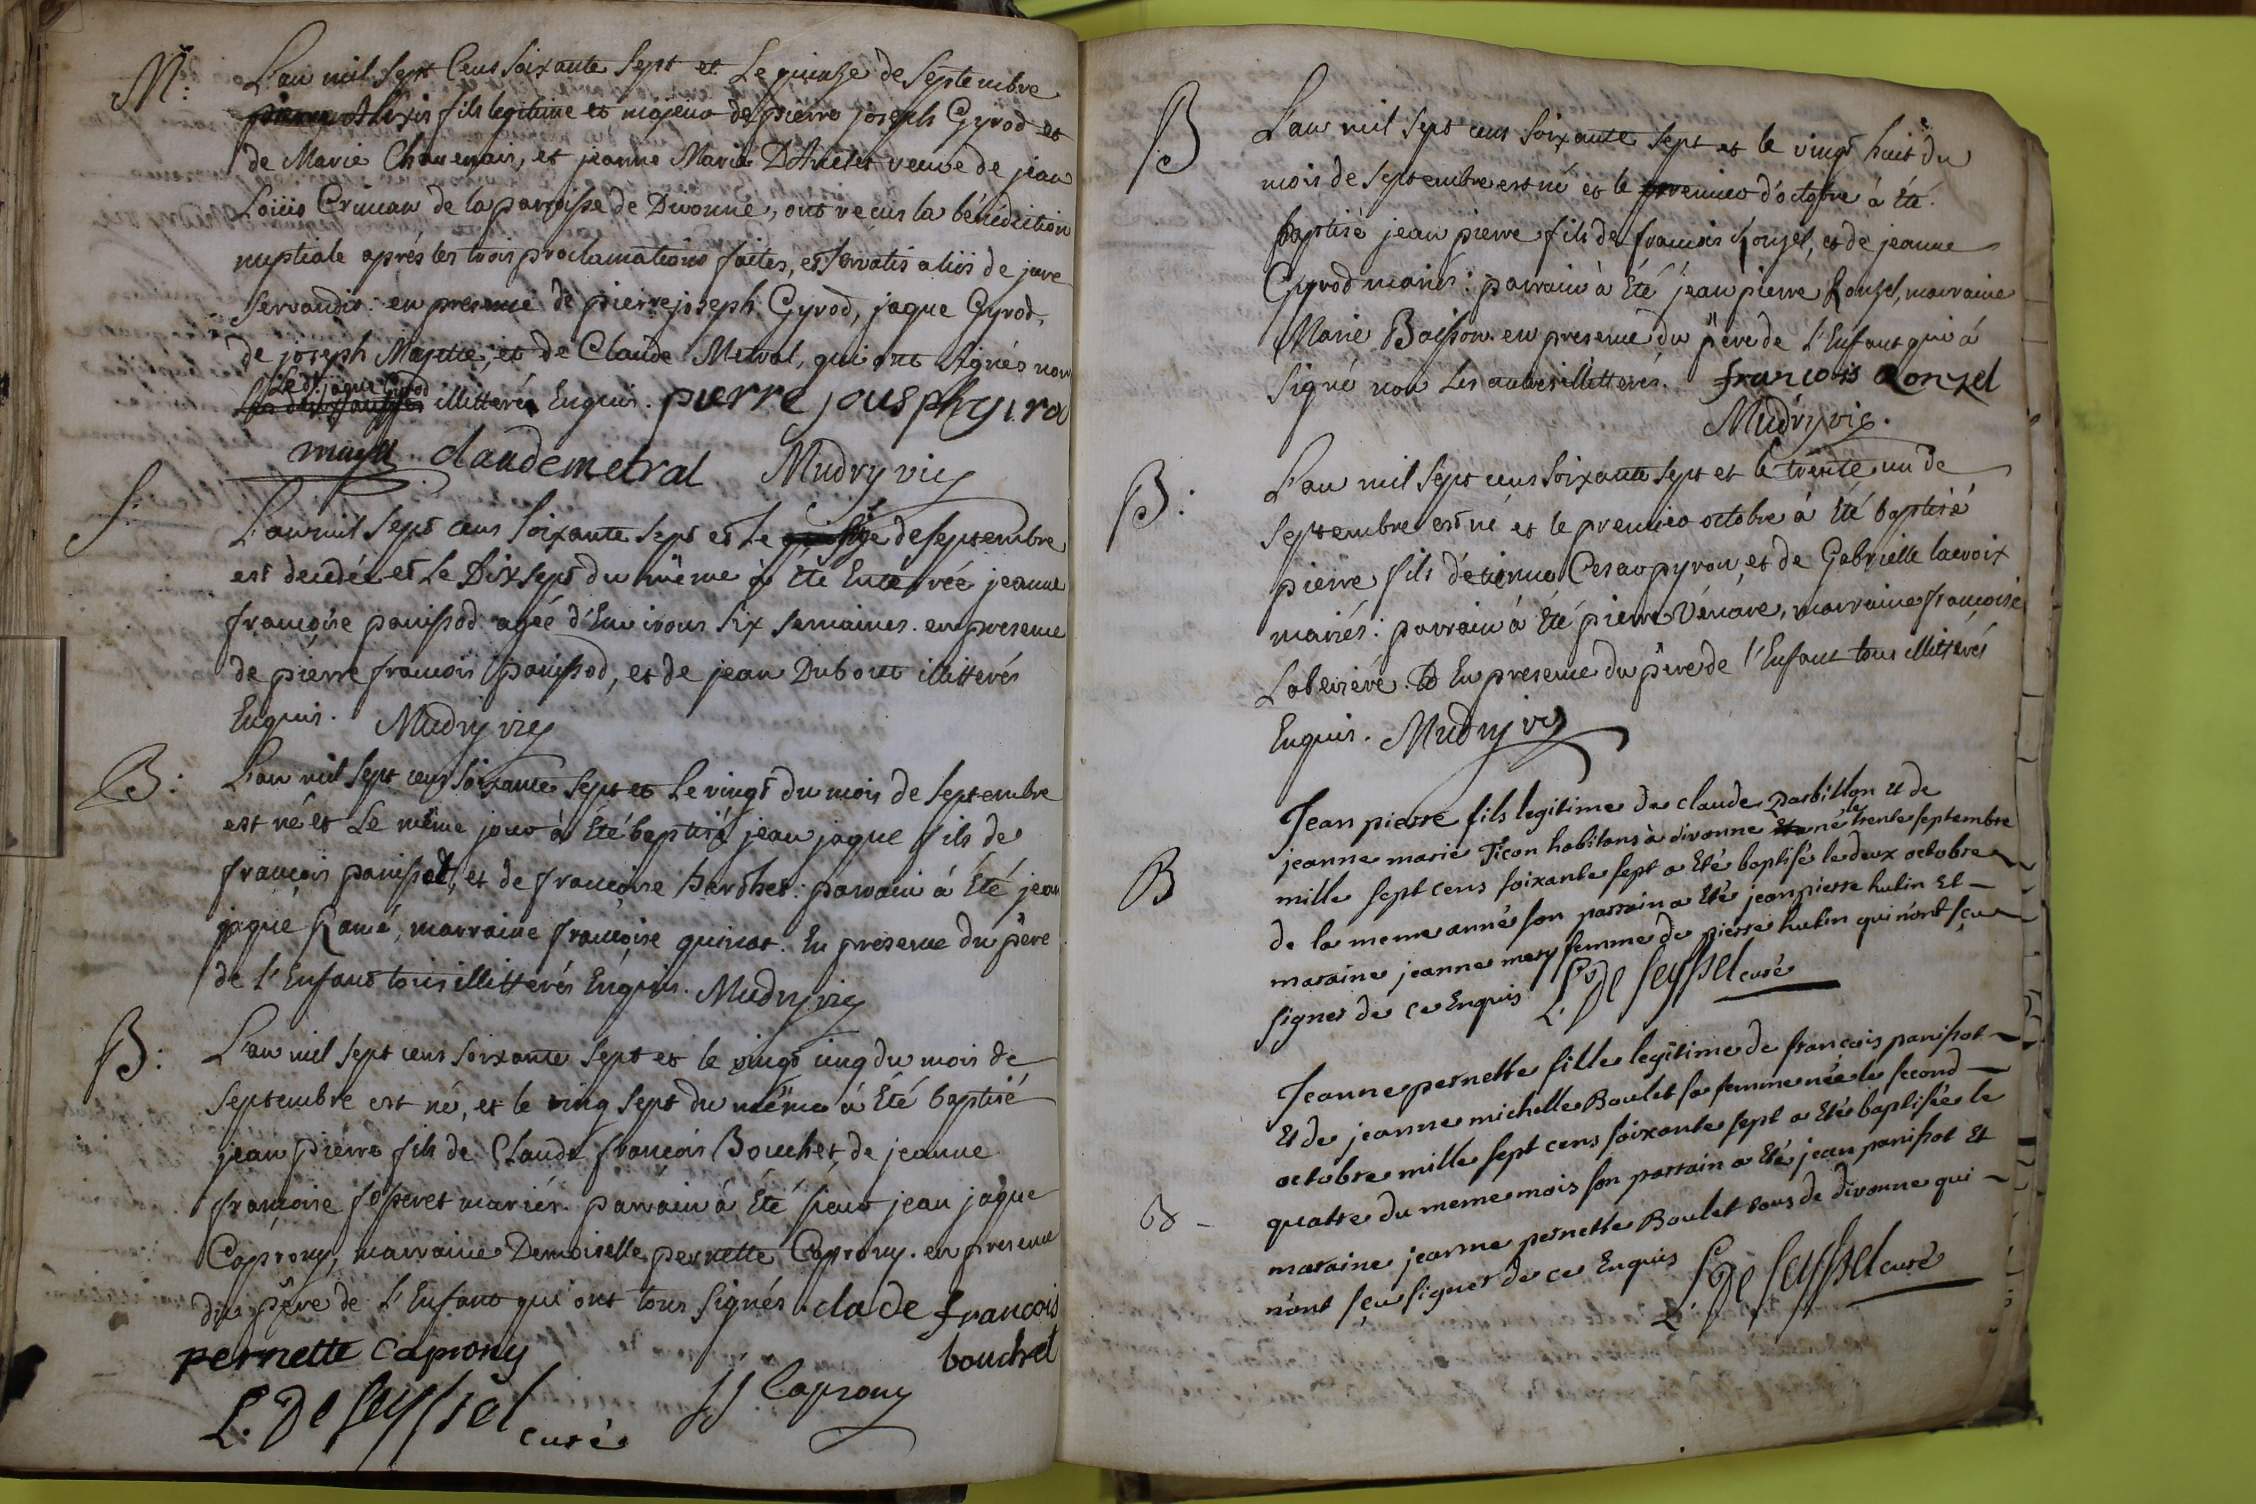 M.
L'an mil sept Cens soixante sept et Le quinze de septembre
Alexis fils legitime et majeur de pierre joseph Gyrod et
de Marie Chavenais, et jeanne Marie veuve de jean
Loüis de la parroisse de Divonne, ont reçus la bénédiction
nuptiale aprés les trois proclamations faites, et servatis aliis de jure
servandis: en presence de pierre joseph Gyrod, jaque Gyrod,
de joseph et de Claude Metral, qui ont signés non
Led.t jaque Gyrod
illitterés Enquis. pierre jousph gira
claude metral Mudry vic
S.
L'an mil sept cens soixante sept et Le de septembre
est decedée et Le Dix sept du même à Eté Enterrée jeanne
françoise panissod agée d'Environs six semaines. en presence
de pierre francois panissod, et de jean Dubout illitterés
Enquis. Mudry vic
B:
L'an mil sept cens soixante sept et Le vingt du mois de septembre
est né et Le même jour à Eté baptisé jean jaque fils de
françois panissod, et de françoise herthet: parrain à Eté jean
jaque Ramé, marraine françoise quinat. En presence du pere
de l'Enfant tous illitterés Enquis. Mudry vic
B:
L'an mil sept cens soixante sept et le vingt cinq du mois de
septembre est né, et le ving sept du même à Eté baptisé
jean pierre fils de Claude françois Bouchet, de jeanne
françoise mariés. parrain à Eté sieur jean jaque
Caprony, marraine Demoiselle pernette Caprony. en presence
du pere de l'Enfant qui ont tous signés. clade francois
pernette caprony bouchet
L. De Seyssel curé JJ. Caprony
B
L'an mil sept cens soixante sept et le vingt huit du
mois de septembre est né et le premier d'octobre à Eté
baptisé jean pierre fils de francois Ronzel, et de jeanne
Gyrod mariés: parrain à Eté jean pierre Ronzel, marraine
Marie Baisson. en presence du pere de l'Enfant qui à
signé non Les autres illitterés. francois Ronzel
Mudry vic.
B:
L'an mil sept cens soixante sept et le trente un de
septembre est né et le premier octobre à Eté baptisé
pierre fils d'etienne Cesar pyron, et de Gabrielle lacroix
mariés: parrain à Eté pierre Vénare, marraine françoise
En presence du pere de l'Enfant tous illitterés
Enquis. Mudry vic
B
Jean pierre fils legitime de claude Parbillon et de
jeanne marie Ticon habitans à divonne né le trente septembre
mille sept cens soixante sept a Eté baptisé le deux octobre
de la meme anné son parrain a Eté jean pierre hutin Et
maraine jeanne mery femme de pierre hutin qui n'ont sçu
signer de ce Enquis L. De Seyssel curé
B
Jeanne pernette fille legitime de francois panissot
Et de jeanne michelle Boulet sa femme née le second
octobre mille sept cens soixante sept a Eté baptisée le
quatre du meme mois son parrain a Eté jean panissot Et
maraine jeanne pernette Boulet tous de divonne qui
n'ont sçu signer de ce Enquis L. De Seyssel curé